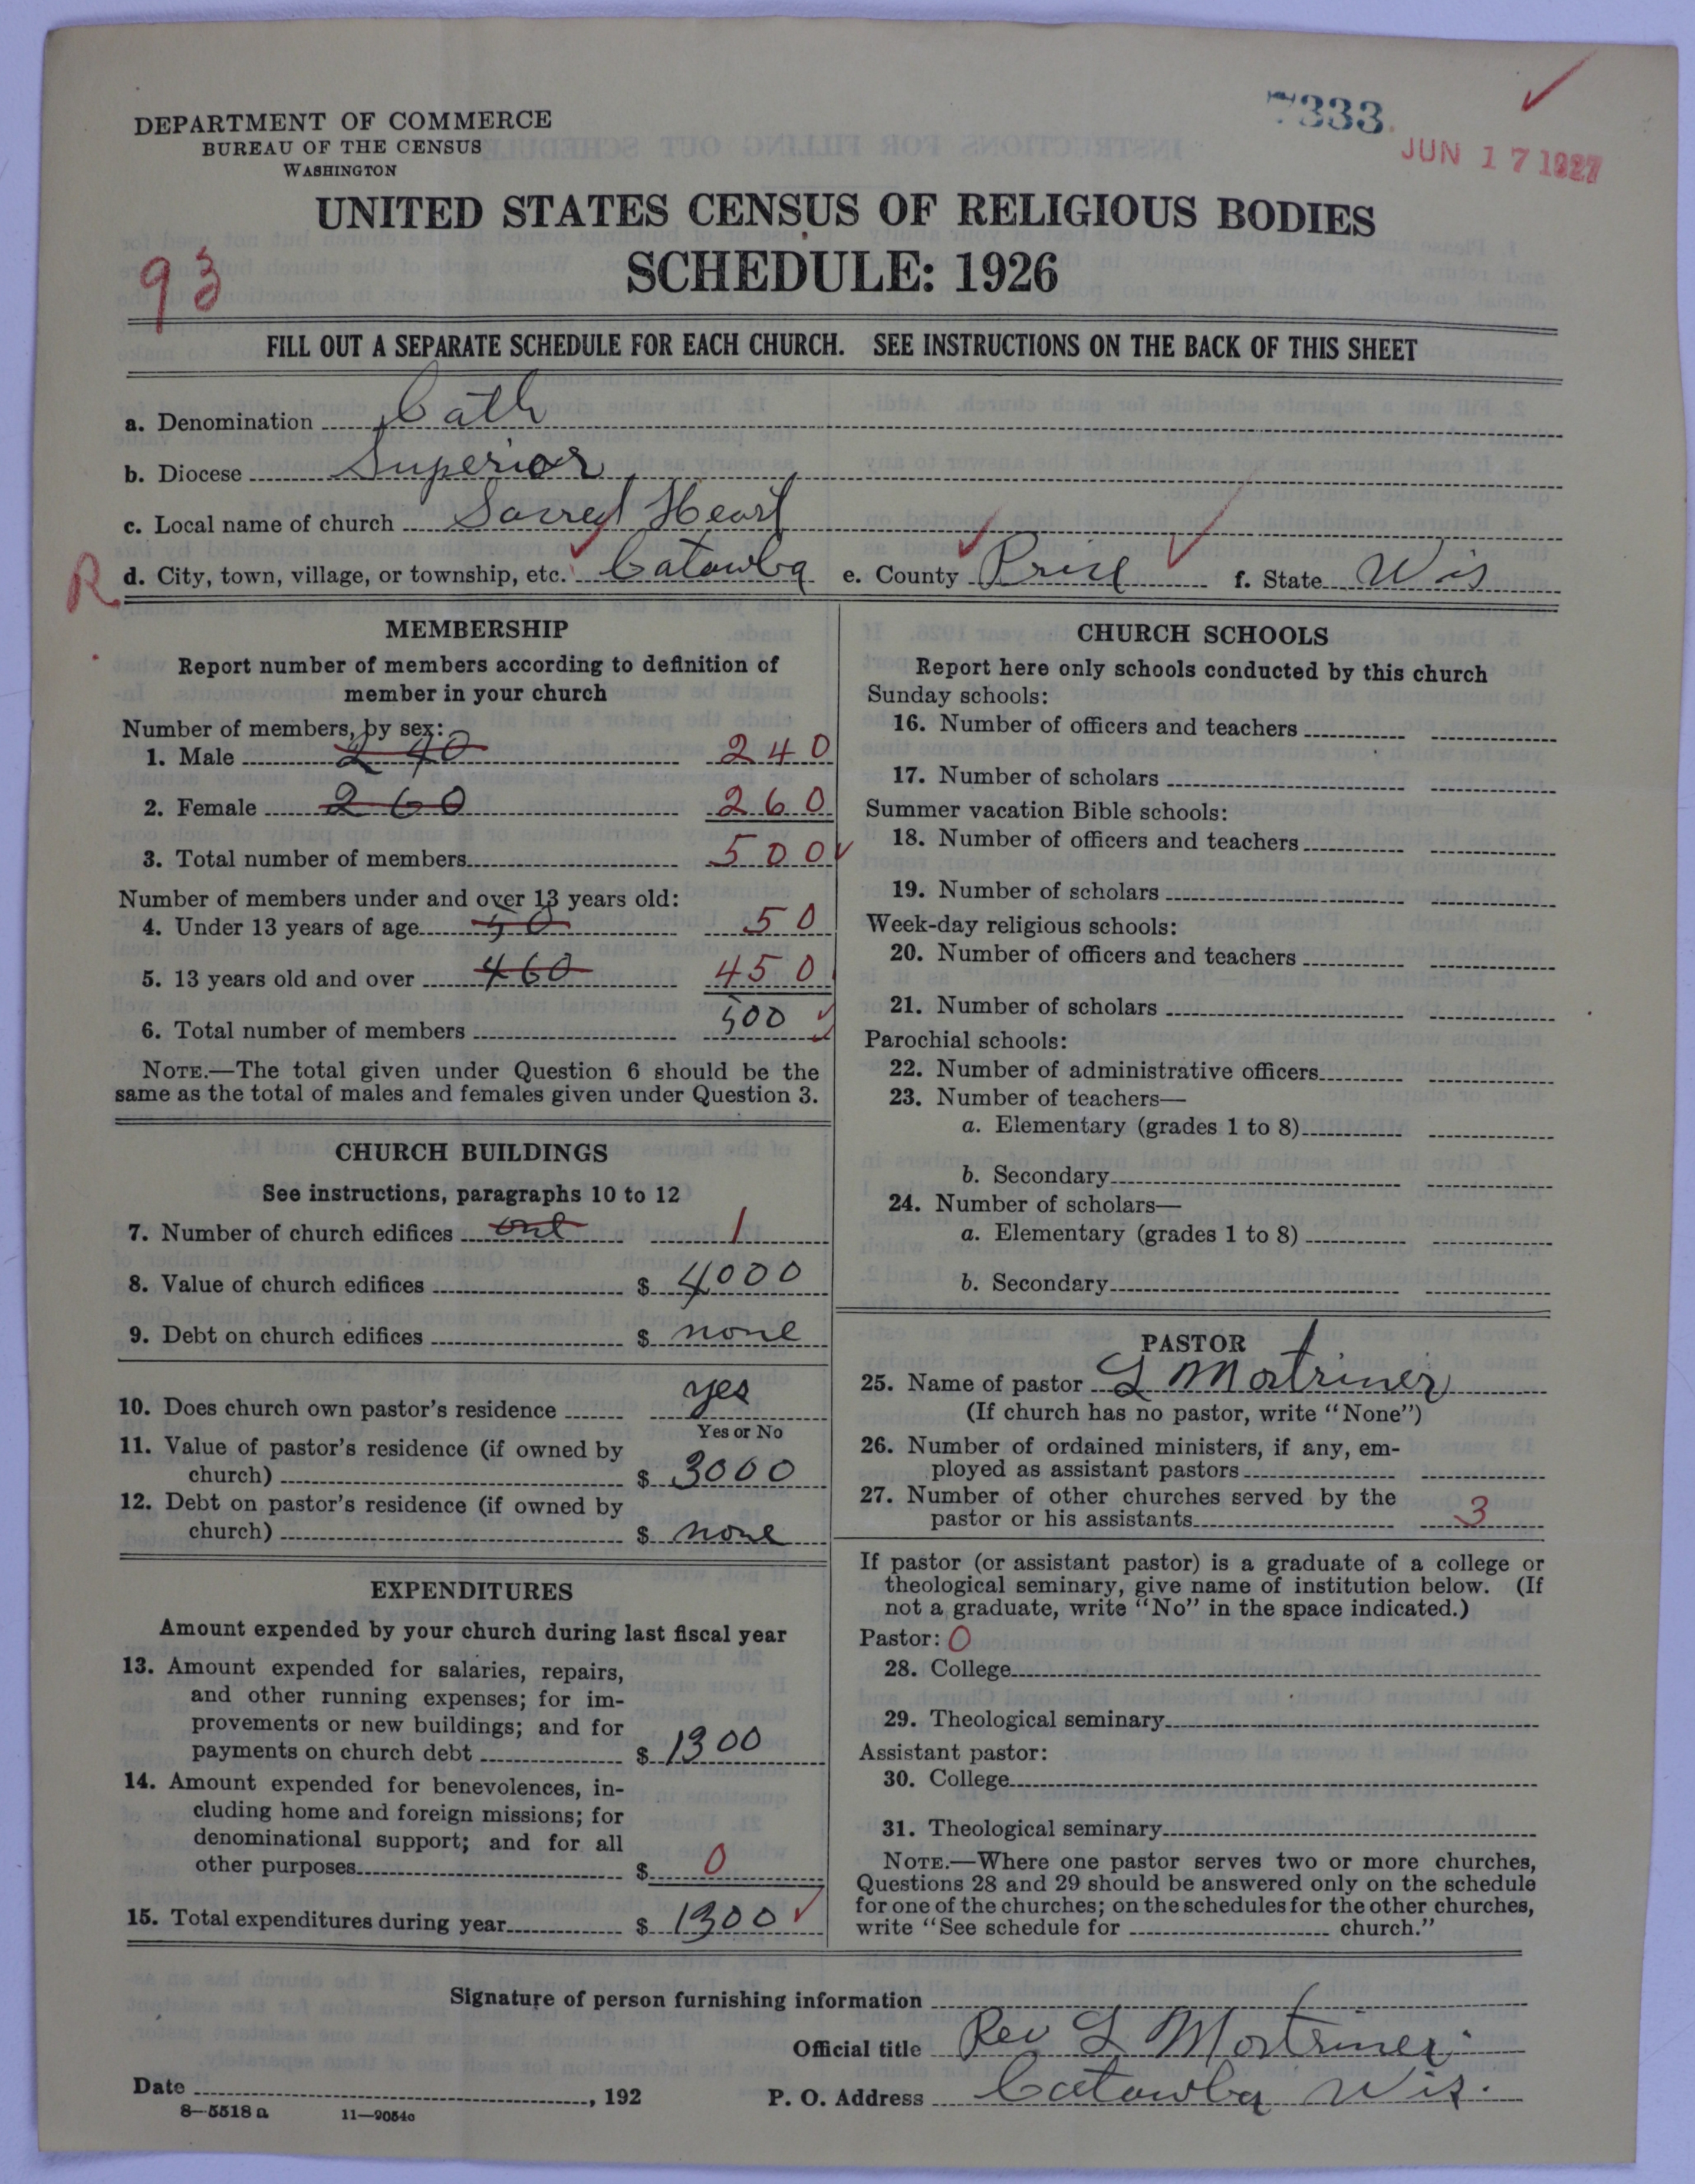 7333
JUN 17 1927
DEPARTMENT OF COMMERCE
BUREAU OF THE CENSUS
WASHINGTON
UNITED STATES CENSUS OF RELIGIOUS BODIES
SCHEDULE: 1926
93
FILL OUT A SEPARATE SCHEDULE FOR EACH CHURCH. SEE INSTRUCTIONS ON THE BACK OF THIS SHEET
a. Denomination Cath
b. Diocese Superior
c. Local name of church Sacred Heart
R d. City, town, village, or township, etc. Catawba e. County Price f. State Wis
MEMBERSHIP
Report number of members according to definition of
member in your church
Number of members, by sex:
1. Male 240 240
2. Female 260 260
3. Total number of members 500
Number of members under and over 13 years old:
4. Under 13 years of age 50 50
5. 13 years old and over 460 450
6. Total number of members 500
NOTE.—The total given under Question 6 should be the
same as the total of males and females given under Question 3.
CHURCH BUILDINGS
See instructions, paragraphs 10 to 12
7. Number of church edifices one 1
8. Value of church edifices $ 4000
9. Debt on church edifices $ none
10. Does church own pastor's residence yes
Yes or No
11. Value of pastor's residence (if owned by
church) $ 3000
12. Debt on pastor's residence (if owned by
church) $ none
EXPENDITURES
Amount expended by your church during last fiscal year
13. Amount expended for salaries, repairs,
and other running expenses; for im-
provements or new buildings; and for
payments on church debt $ 1300
14. Amount expended for benevolences, in-
cluding home and foreign missions; for
denominational support; and for all
other purposes $ 0
15. Total expenditures during year $ 1300
CHURCH SCHOOLS
Report here only schools conducted by this church
Sunday schools:
16. Number of officers and teachers
17. Number of scholars
Summer vacation Bible schools:
18. Number of officers and teachers
19. Number of scholars
Week-day religious schools:
20. Number of officers and teachers
21. Number of scholars
Parochial schools:
22. Number of administrative officers
23. Number of teachers—
a. Elementary (grades 1 to 8)
b. Secondary
24. Number of scholars—
a. Elementary (grades 1 to 8)
b. Secondary
PASTOR
25. Name of pastor L Mortriner
(If church has no pastor, write "None")
26. Number of ordained ministers, if any, em-
ployed as assistant pastors
27. Number of other churches served by the
pastor or his assistants 3
If pastor (or assistant pastor) is a graduate of a college or
theological seminary, give name of institution below. (If
not a graduate, write "No" in the space indicated.)
Pastor: 0
28. College
29. Theological seminary
Assistant pastor:
30. College
31. Theological seminary
NOTE.—Where one pastor serves two or more churches,
Questions 28 and 29 should be answered only on the schedule
for one of the churches; on the schedules for the other churches,
write "See schedule for church."
Signature of person furnishing information
Official title Rev L Mortriner
Date , 192 P. O. Address Catawba Wis.
8—5518 a 11—9054c